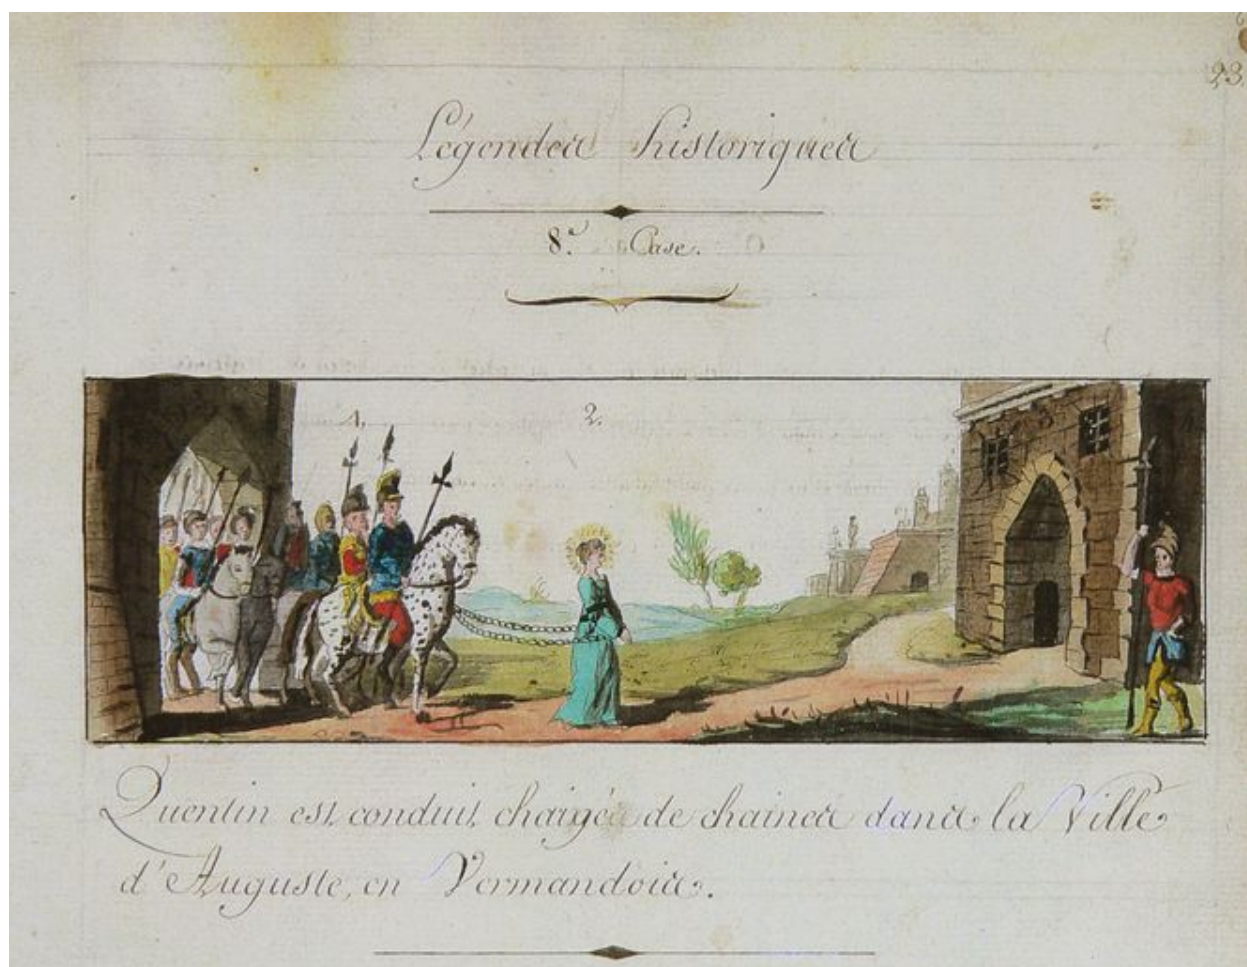 23.
Légendes historiques
8.e Case.
1. 2.
Quentin est conduit chargé de chaines dans la Ville
d'Auguste, en Vermandois.